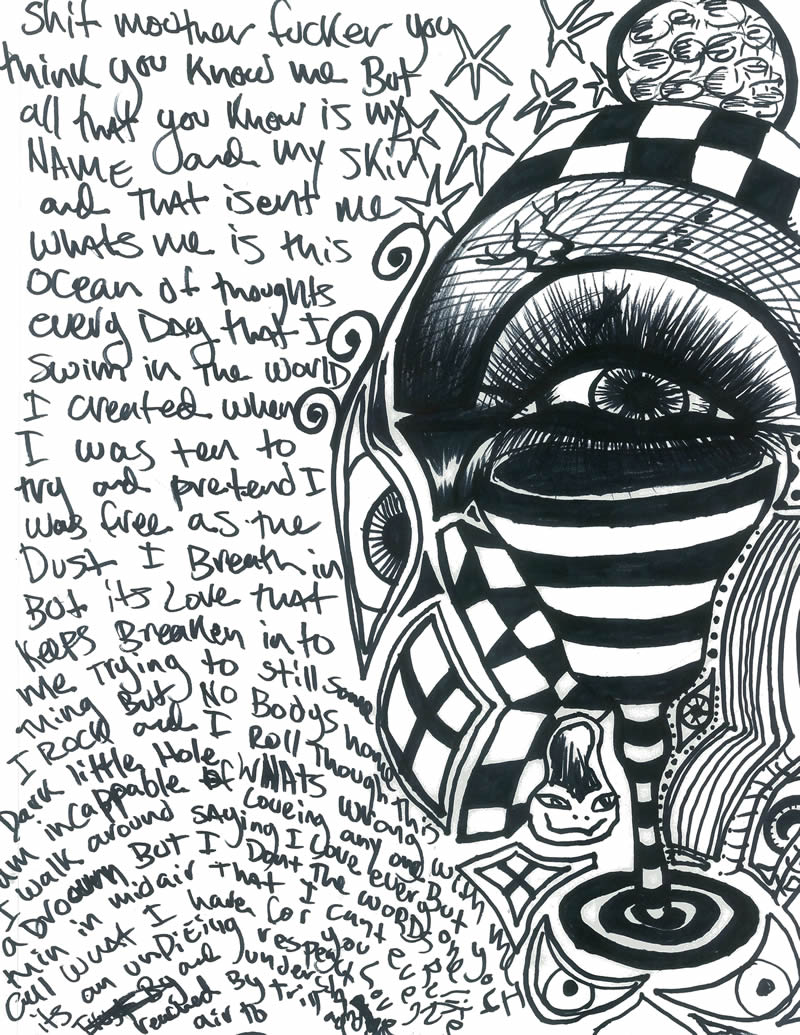 Shit mother fucker you
think you know me But
all that you know is my
NAME and my skin
and THAT isent me
whats me is this
ocean of thoughts
every Day that I
swim in the world
I created when
I was ten to
try and pretend I
was free as the
Dust I Breath in
But its Love that
keeps Breaken in to
me Trying to still some
thing But NO Bodys home
I Rock and I Roll Though this
Dark little Hole WHATS wrong with my
am incappable of Loveing any one
I walk around saying I love every Body
a Drown But I Dont The word on
min in midair That I cant
Call wust I have for you
its an unDieing respect
By and under
reached By
air to